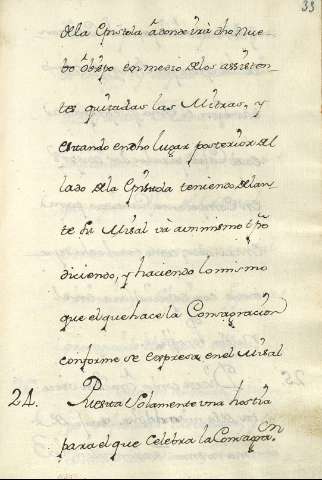 33
dela Epistola adonde irà dho Nue-
bo Obispo en medio delos assisten-
tes quitadas las Mitras, y
estando en dho lugar posterior del
lado dela Epistola teniendo delan-
te su Misal và a un mismo tpo
diciendo, y haciendo lo mismo
que el que hace la Consagracion
conforme se expresa en el Misal
24. Puesta Solamente una hostia
para el que Celebra la Consagra.on